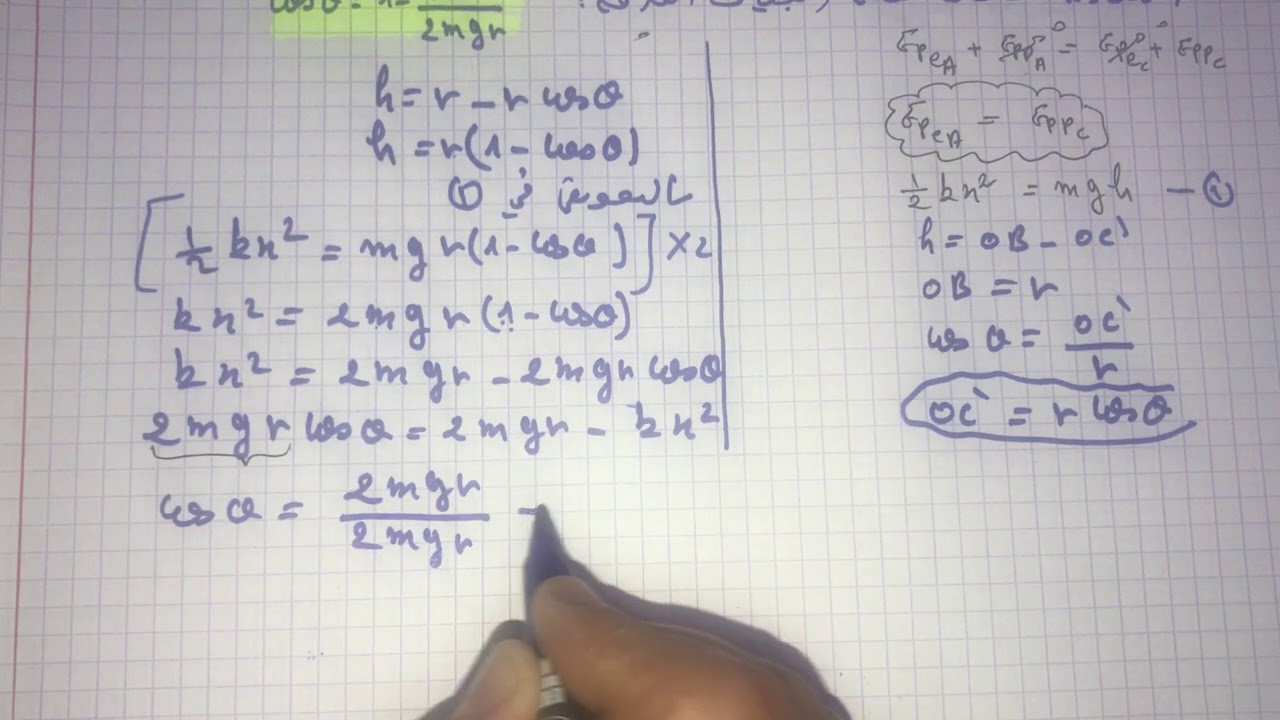 2mgr
h = r - r cosθ
h = r(1 - cosθ)
بالتعويض في ①
[ 1/2 kx² = mgr(1 - cosθ) ] × 2
kx² = 2mgr(1 - cosθ)
kx² = 2mgr - 2mgr cosθ
2mgr cosθ = 2mgr - kx²
cosθ = 2mgr/2mgr -
EpeA + EppA⁰ = Epec⁰ + Eppc
EpeA = Eppc
1/2 kx² = mgh — ①
h = OB - OC'
OB = r
cosθ = OC'/r
OC' = r cosθ